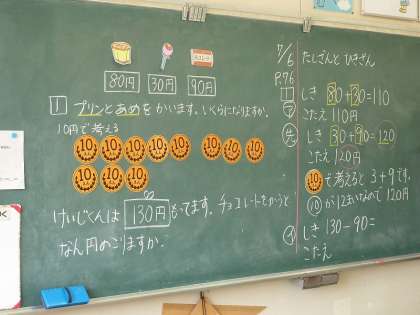 80円 30円 90円
1 プリンとあめをかいます。いくらになりますか。
10円で考える
10 10 10 10 10 10 10 10
10 10 10
けいじくんは 130円もってます。チョコレートをかうと
なん円のこりますか。
7/6
P.76
1
ア
たしざんと ひきざん
しき 80+30=110
こたえ 110円
しき 30+90=120
こたえ 120円
10で考えると 3+9です。
10が12まいなので 120円
しき 130-90=
こたえ